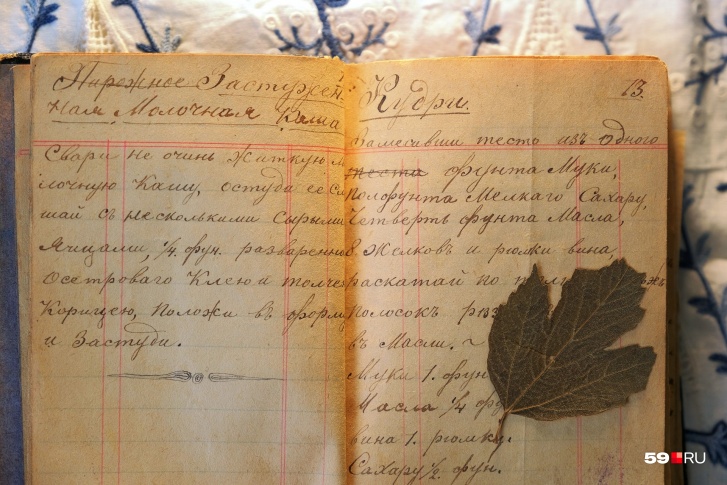 Пирожное Застужен-
ная Молочная Каша
Свари не очинь житкую м
лочную Кашу, остуди ее См
шай съ несколькими сырыми
Яицами, 1/4 фун. разваренно
осетроваго Клею и толчен
Корицею, положи въ форм
и Застуди.
13.
Кудри.
Замесивши тесто изъ одного
теста фунта Муки,
Полфунта Мелкаго Сахару,
Четверть фунта Масла,
8 Желковъ и рюмки вина,
раскатай по
Полосокъ
въ Масли.
Муки 1. фун
Масла 1/4 фу
вина 1. рюмку.
Сахару 1/2 фун.
59.RU